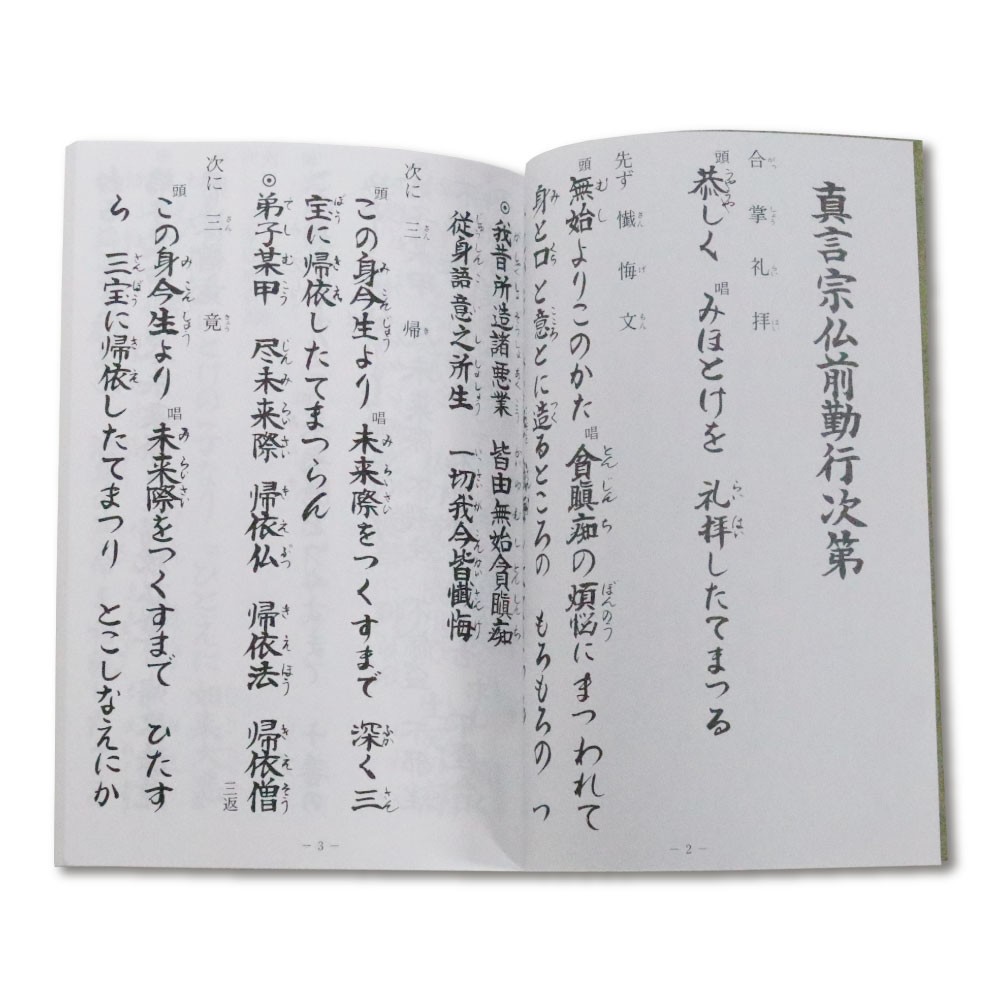 真言宗仏前勤行次第
合掌礼拝
頭 恭しく 唱 みほとけを 礼拝したてまつる
先ず 懺悔文
頭 無始よりこのかた 唱 貪瞋痴の煩悩にまつわれて
身と口と意とに造るところの もろもろの つ
⊙ 我昔所造諸悪業 皆由無始貪瞋痴
従身語意之所生 一切我今皆懺悔
次に 三帰
頭 この身今生より 唱 未来際をつくすまで 深く三
宝に帰依したてまつらん
⊙ 弟子某甲 尽未来際 帰依仏 帰依法 帰依僧 三返
次に 三竟
頭 この身今生より 唱 未来際をつくすまで ひたす
ら 三宝に帰依したてまつり とこしなえにか
− 3 −
− 2 −